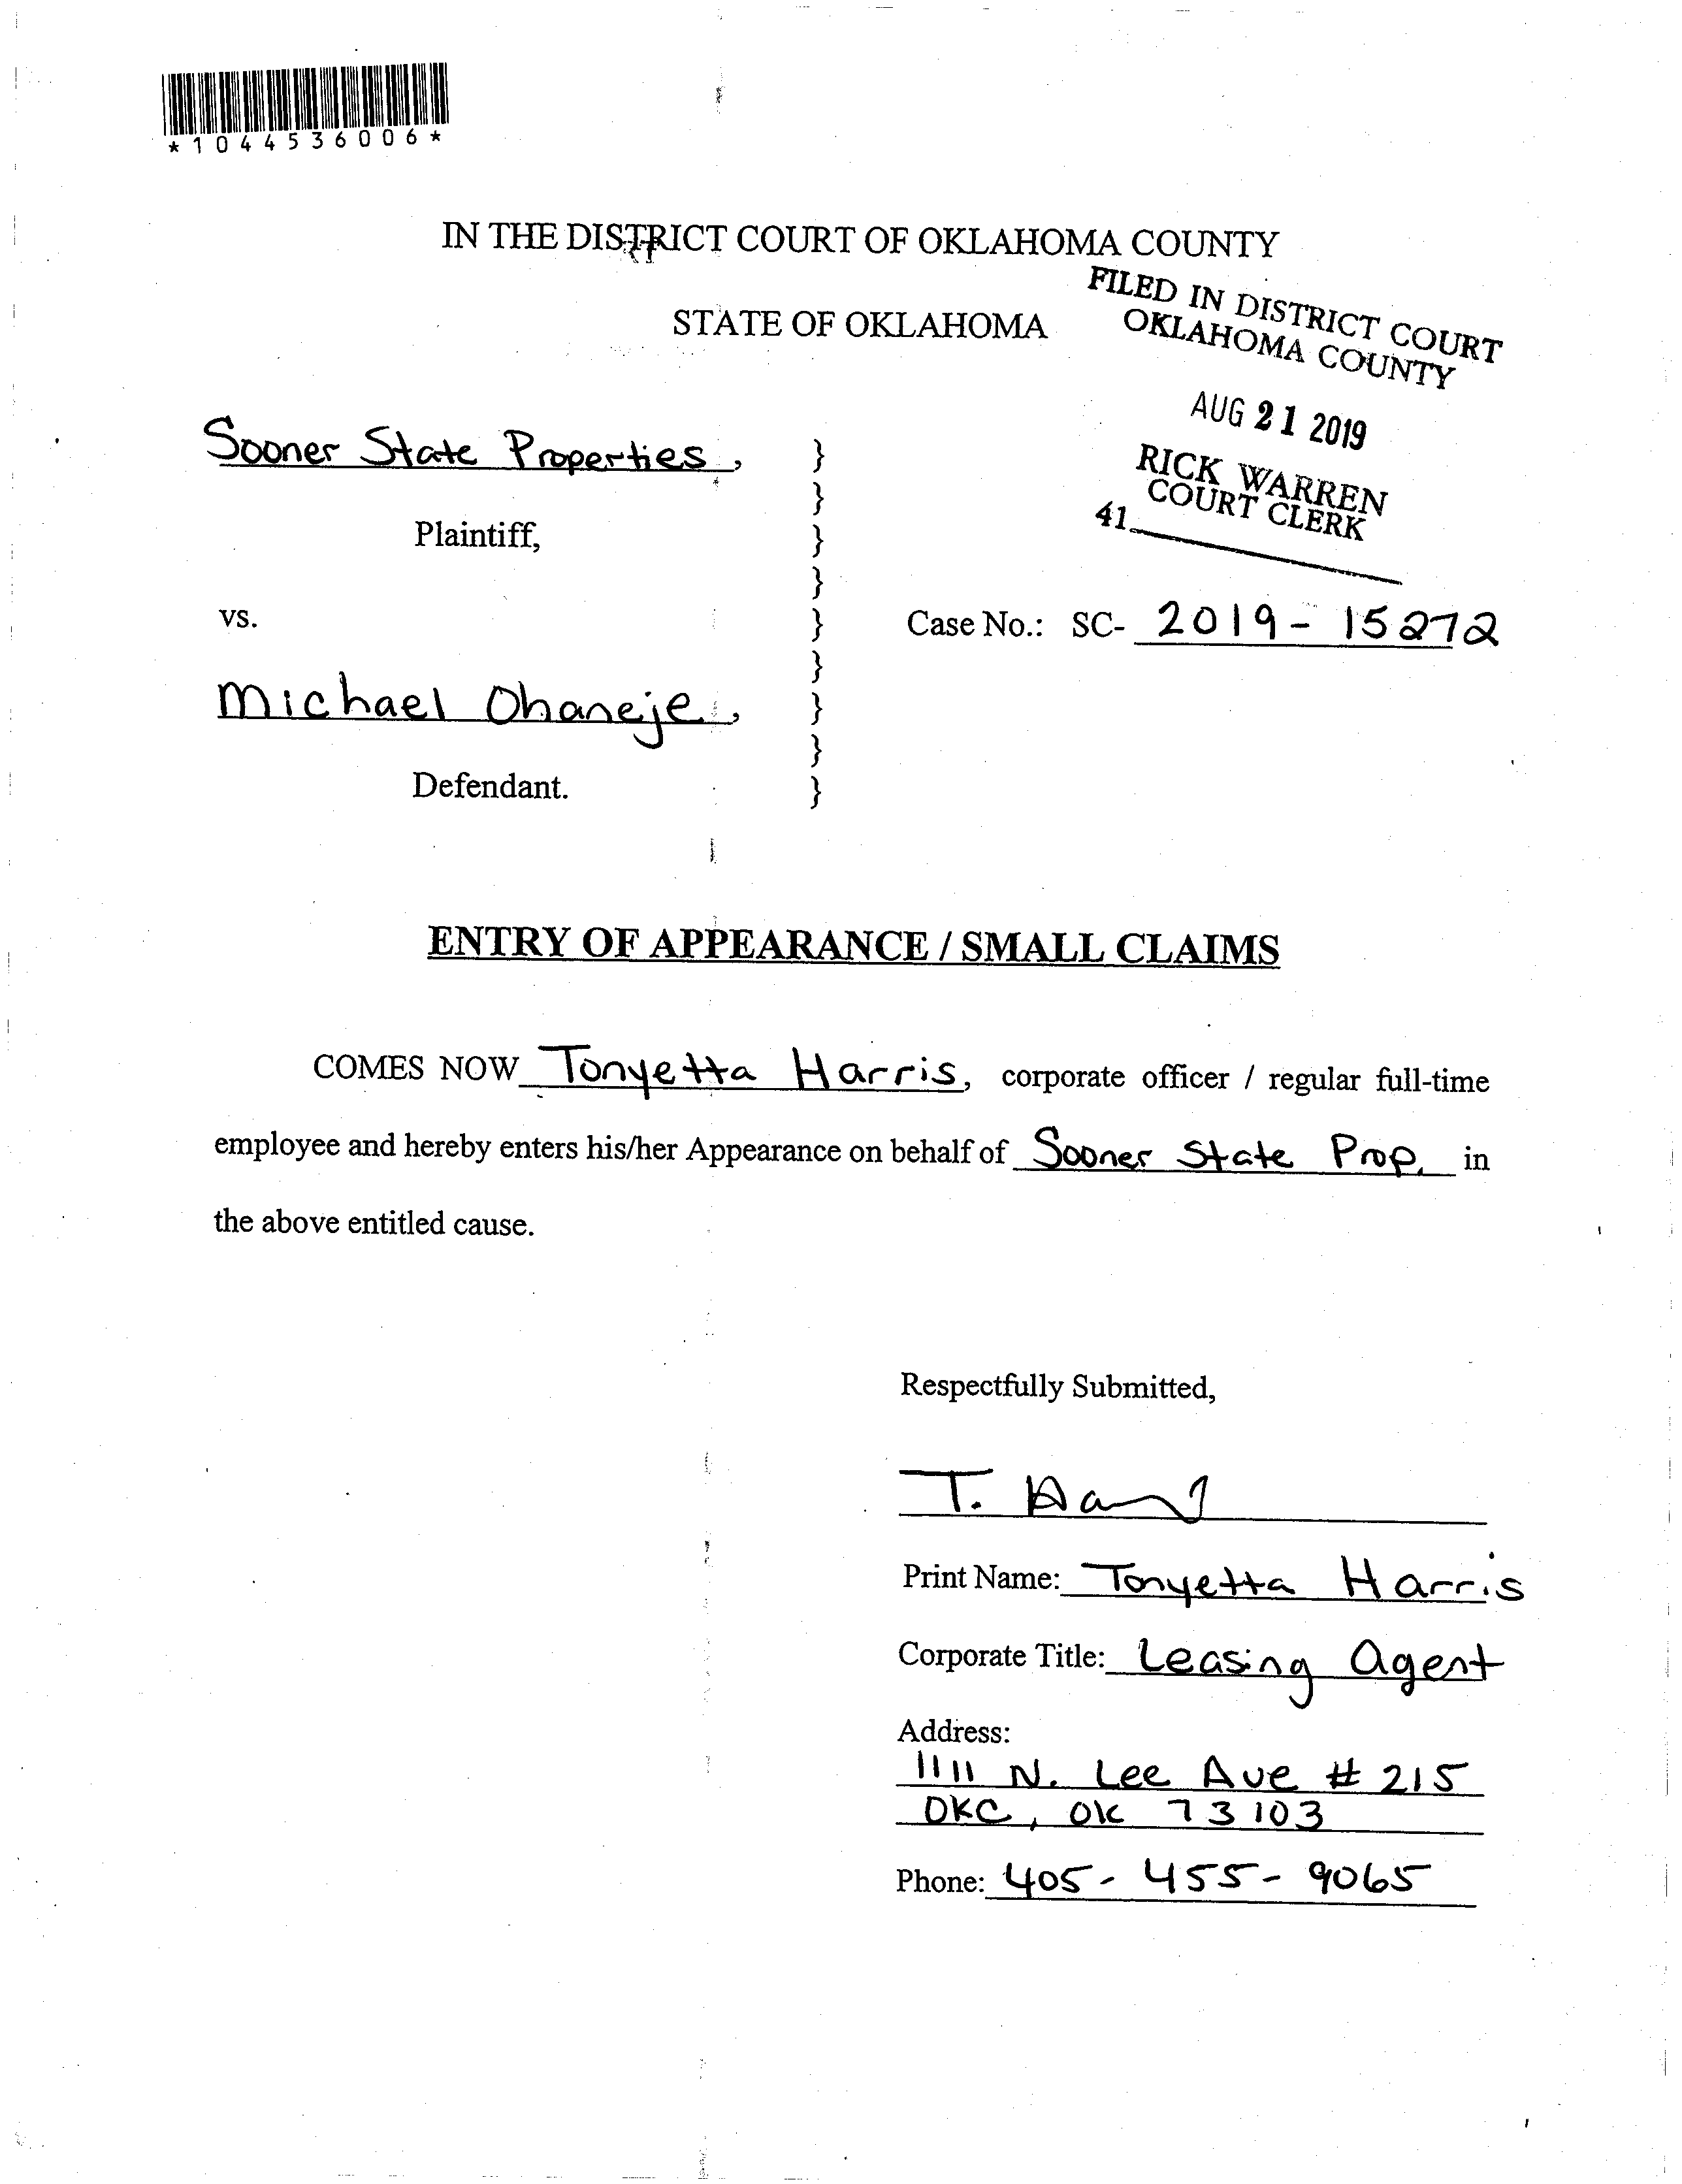 *1044536006*
IN THE DISTRICT COURT OF OKLAHOMA COUNTY
STATE OF OKLAHOMA
FILED IN DISTRICT COURT
OKLAHOMA COUNTY
AUG 21 2019
RICK WARREN
COURT CLERK
41
Sooner State Properties,
Plaintiff,
vs.
Case No.: SC- 2019-15272
Michael Ohaneje,
Defendant.
}
}
}
}
}
}
}
}
}
ENTRY OF APPEARANCE / SMALL CLAIMS
COMES NOW Tonyetta Harris, corporate officer / regular full-time
employee and hereby enters his/her Appearance on behalf of Sooner State Prop. in
the above entitled cause.
Respectfully Submitted,
T. Har
Print Name: Tonyetta Harris
Corporate Title: Leasing Agent
Address:
1111 N. Lee Ave # 215
OKC, OK 73103
Phone: 405-455-9065